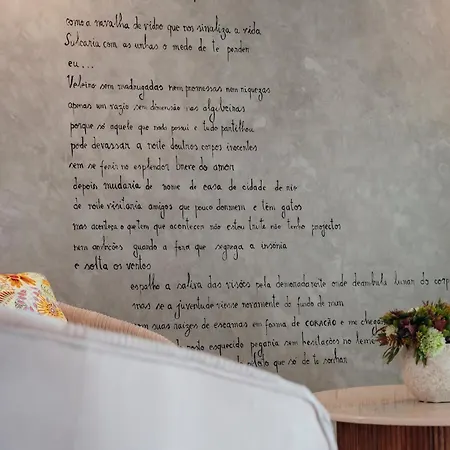 como a navalha de vidro que nos sinaliza a vida
Sulcaria com as unhas o medo de te perder
eu...
Veleiro sem madrugadas nem promessas nem riquezas
apenas um vazio sem dimensão nas algibeiras
porque só aquele que nada possui e tudo partilhou
pode devassar a noite doutros corpos inocentes
sem se ferir no esplendor breve do amor
depois mudaria de nome de casa de cidade de rio
de noite visitaria amigos que pouco dormem e têm gatos
mas aconteça o que tem que acontecer não estou triste não tenho projectos
nem ambições guardo a fera que segrega a insónia
e solta os ventos
espalho a saliva das visões pela demorada noite onde deambula lunar do corpo
mas se a juventude viesse novamente do fundo de mim
com suas raízes de escamas em forma de coração e me chegas
rosto esquecido pegaria sem hesitações no leme
que só de te sonhar